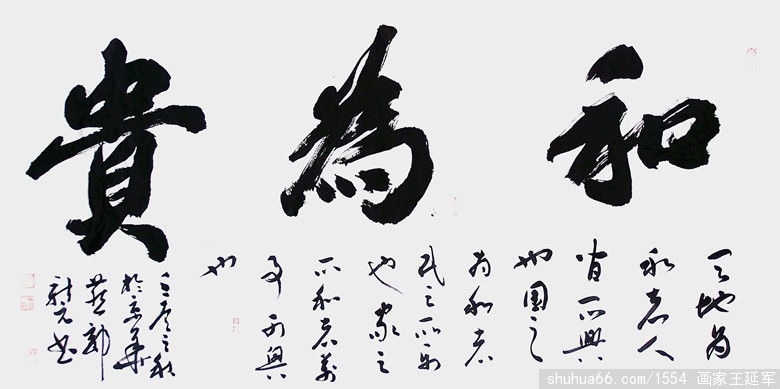 和為貴
天地為
和者人
皆可興
也國之
為和者
民之所
也家之
所和者萬
事可興
也
壬辰之秋
於京華
燕郊
書
shuhua66.com/1554 画家王延军